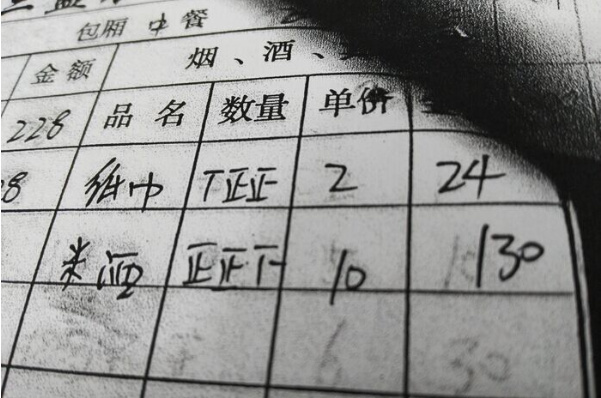 包厢 中餐
金额 烟、酒、
228 品名 数量 单价
8 纸巾 丅正正 2 24
米酒 正正下 10 130
6 30